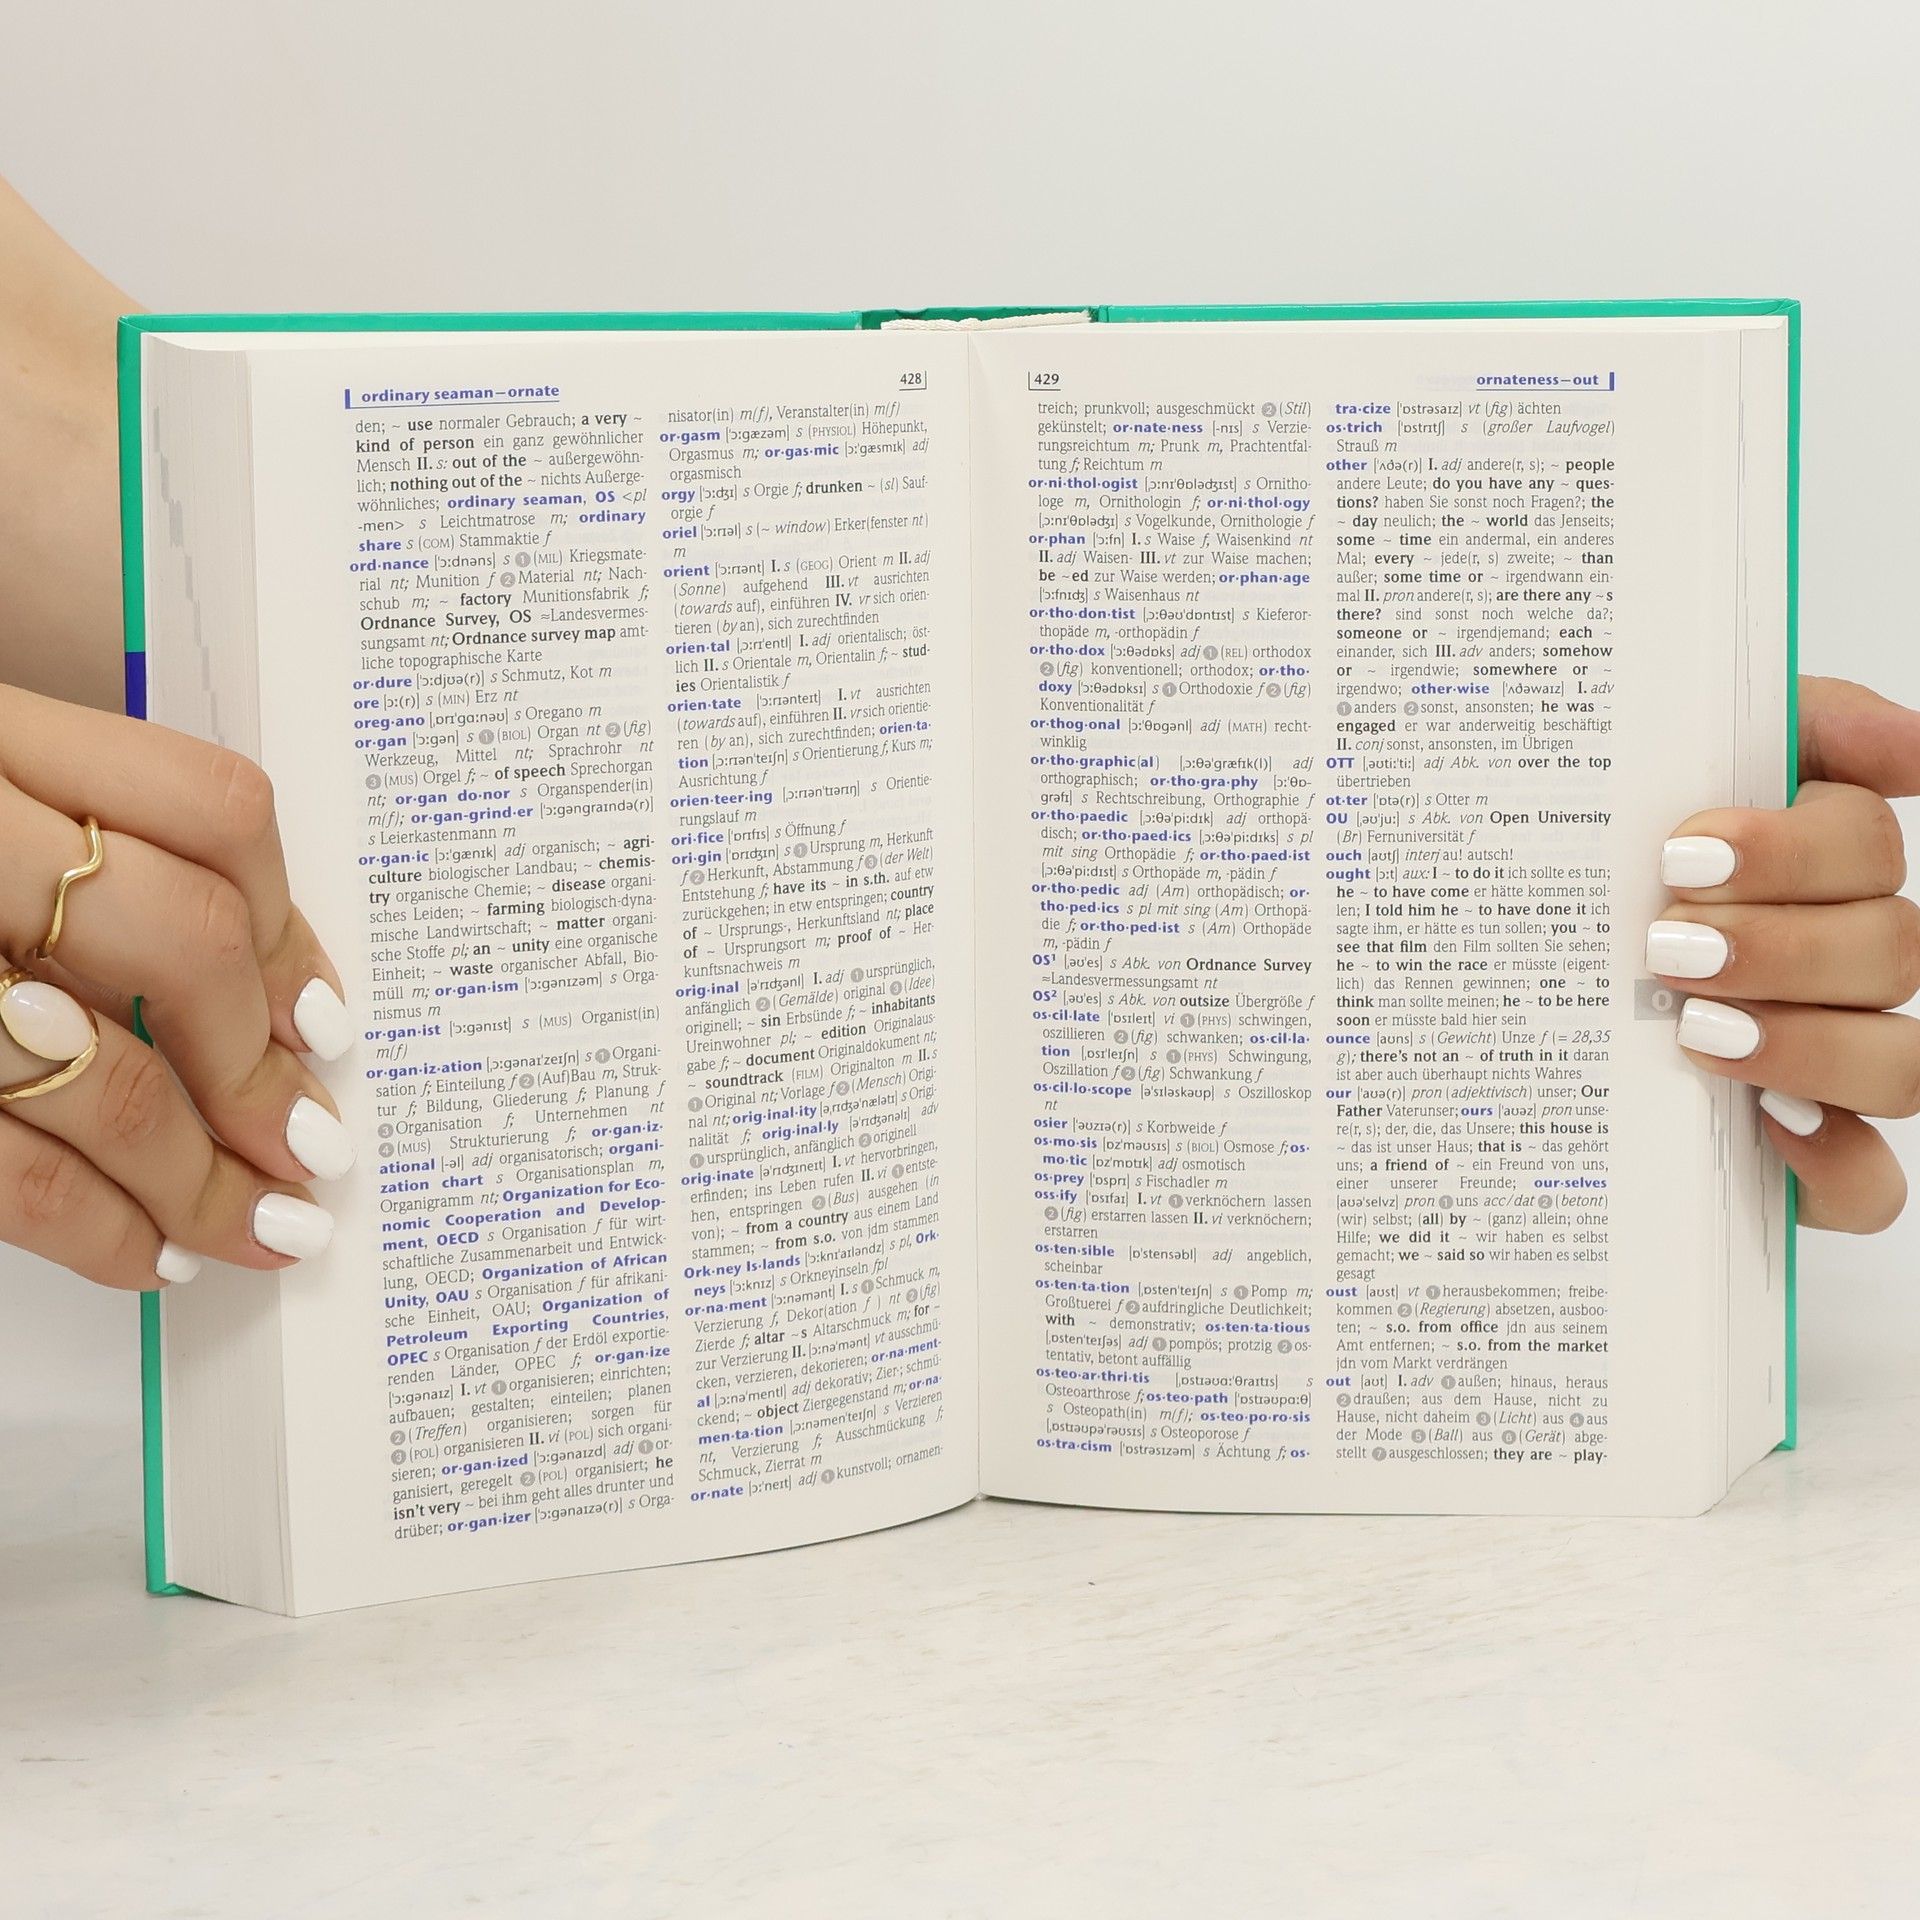 ordinary seaman—ornate
428
den; ~ use normaler Gebrauch; a very ~
kind of person ein ganz gewöhnlicher
Mensch II. s: out of the ~ außergewöhn-
lich; nothing out of the ~ nichts Außerge-
wöhnliches; ordinary seaman, OS <pl
-men> s Leichtmatrose m; ordinary
share s (COM) Stammaktie f
ord·nance [ˈɔːdnəns] s ❶ (MIL) Kriegsmate-
rial nt; Munition f ❷ Material nt; Nach-
schub m; ~ factory Munitionsfabrik f;
Ordnance Survey, OS ≈Landesvermes-
sungsamt nt; Ordnance survey map amt-
liche topographische Karte
or·dure [ˈɔːdjʊə(r)] s Schmutz, Kot m
ore [ɔː(r)] s (MIN) Erz nt
oreg·ano [ˌɒrɪˈgɑːnəʊ] s Oregano m
or·gan [ˈɔːgən] s ❶ (BIOL) Organ nt ❷ (fig)
Werkzeug, Mittel nt; Sprachrohr nt
❸ (MUS) Orgel f; ~ of speech Sprechorgan
nt; or·gan do·nor s Organspender(in)
m(f); or·gan-grind·er [ˈɔːgəngraɪndə(r)]
s Leierkastenmann m
or·gan·ic [ɔːˈgænɪk] adj organisch; ~ agri-
culture biologischer Landbau; ~ chemis-
try organische Chemie; ~ disease organi-
sches Leiden; ~ farming biologisch-dyna-
mische Landwirtschaft; ~ matter organi-
sche Stoffe pl; an ~ unity eine organische
Einheit; ~ waste organischer Abfall, Bio-
müll m; or·gan·ism [ˈɔːgənɪzəm] s Orga-
nismus m
or·gan·ist [ˈɔːgənɪst] s (MUS) Organist(in)
m(f)
or·gan·iz·ation [ˌɔːgənaɪˈzeɪʃn] s ❶ Organi-
sation f; Einteilung f ❷ (Auf)Bau m, Struk-
tur f; Bildung, Gliederung f; Planung f
❸ Organisation f; Unternehmen nt
❹ (MUS) Strukturierung f; or·gan·iz-
ational [-əl] adj organisatorisch; organi-
zation chart s Organisationsplan m,
Organigramm nt; Organization for Eco-
nomic Cooperation and Develop-
ment, OECD s Organisation f für wirt-
schaftliche Zusammenarbeit und Entwick-
lung, OECD; Organization of African
Unity, OAU s Organisation f für afrikani-
sche Einheit, OAU; Organization of
Petroleum Exporting Countries,
OPEC s Organisation f der Erdöl exportie-
renden Länder, OPEC f; or·gan·ize
[ˈɔːgənaɪz] I. vt ❶ organisieren; einrichten;
aufbauen; gestalten; einteilen; planen
❷ (Treffen) organisieren; sorgen für
❸ (POL) organisieren II. vi (POL) sich organi-
sieren; or·gan·ized [ˈɔːgənaɪzd] adj ❶ or-
ganisiert, geregelt ❷ (POL) organisiert; he
isn't very ~ bei ihm geht alles drunter und
drüber; or·gan·izer [ˈɔːgənaɪzə(r)] s Orga-
nisator(in) m(f), Veranstalter(in) m(f)
or·gasm [ˈɔːgæzəm] s (PHYSIOL) Höhepunkt,
Orgasmus m; or·gas·mic [ɔːˈgæsmɪk] adj
orgasmisch
orgy [ˈɔːdʒɪ] s Orgie f; drunken ~ (sl) Sauf-
orgie f
oriel [ˈɔːrɪəl] s (~ window) Erker(fenster nt)
m
orient [ˈɔːrɪənt] I. s (GEOG) Orient m II. adj
(Sonne) aufgehend III. vt ausrichten
(towards auf), einführen IV. vr sich orien-
tieren (by an), sich zurechtfinden
orien·tal [ˌɔːrɪˈentl] I. adj orientalisch; öst-
lich II. s Orientale m, Orientalin f; ~ stud-
ies Orientalistik f
orien·tate [ˈɔːrɪənteɪt] I. vt ausrichten
(towards auf), einführen II. vr sich orientie-
ren (by an), sich zurechtfinden; orien·ta-
tion [ˌɔːrɪənˈteɪʃn] s Orientierung f, Kurs m;
Ausrichtung f
orien·teer·ing [ˌɔːrɪənˈtɪərɪŋ] s Orientie-
rungslauf m
ori·fice [ˈɒrɪfɪs] s Öffnung f
ori·gin [ˈɒrɪdʒɪn] s ❶ Ursprung m, Herkunft
f ❷ Herkunft, Abstammung f ❸ (der Welt)
Entstehung f; have its ~ in s.th. auf etw
zurückgehen; in etw entspringen; country
of ~ Ursprungs-, Herkunftsland nt; place
of ~ Ursprungsort m; proof of ~ Her-
kunftsnachweis m
orig·inal [əˈrɪdʒənl] I. adj ❶ ursprünglich,
anfänglich ❷ (Gemälde) original ❸ (Idee)
originell; ~ sin Erbsünde f; ~ inhabitants
Ureinwohner pl; ~ edition Originalaus-
gabe f; ~ document Originaldokument nt;
~ soundtrack (FILM) Originalton m II. s
❶ Original nt; Vorlage f ❷ (Mensch) Origi-
nal nt; orig·inal·ity [əˌrɪdʒəˈnælətɪ] s Origi-
nalität f; orig·inal·ly [əˈrɪdʒənəlɪ] adv
❶ ursprünglich, anfänglich ❷ originell
orig·inate [əˈrɪdʒɪneɪt] I. vt hervorbringen,
erfinden; ins Leben rufen II. vi ❶ entste-
hen, entspringen ❷ (Bus) ausgehen (in
von); ~ from a country aus einem Land
stammen; ~ from s.o. von jdm stammen
Ork·ney Is·lands [ˈɔːknɪˈaɪləndz] s pl, Ork-
neys [ˈɔːknɪz] s Orkneyinseln fpl
or·na·ment [ˈɔːnəmənt] I. s ❶ Schmuck m,
Verzierung f, Dekor(ation f ) nt ❷ (fig)
Zierde f; altar ~s Altarschmuck m; for ~
zur Verzierung II. [ˈɔːnəˈmənt] vt ausschmü-
cken, verzieren, dekorieren; or·na·ment-
al [ˌɔːnəˈmentl] adj dekorativ; Zier-; schmü-
ckend; ~ object Ziergegenstand m; or·na-
men·ta·tion [ˌɔːnəmenˈteɪʃn] s Verzieren
nt, Verzierung f; Ausschmückung f;
Schmuck, Zierrat m
or·nate [ɔːˈneɪt] adj ❶ kunstvoll; ornamen-
429
ornateness—out
treich; prunkvoll; ausgeschmückt ❷ (Stil)
gekünstelt; or·nate·ness [-nɪs] s Verzie-
rungsreichtum m; Prunk m, Prachtentfal-
tung f; Reichtum m
or·ni·thol·ogist [ˌɔːnɪˈθɒlədʒɪst] s Ornitho-
loge m, Ornithologin f; or·ni·thol·ogy
[ˌɔːnɪˈθɒlədʒɪ] s Vogelkunde, Ornithologie f
or·phan [ˈɔːfn] I. s Waise f, Waisenkind nt
II. adj Waisen- III. vt zur Waise machen;
be ~ed zur Waise werden; or·phan·age
[ˈɔːfnɪdʒ] s Waisenhaus nt
or·tho·don·tist [ˌɔːθəʊˈdɒntɪst] s Kieferor-
thopäde m, -orthopädin f
or·tho·dox [ˈɔːθədɒks] adj ❶ (REL) orthodox
❷ (fig) konventionell; orthodox; or·tho-
doxy [ˈɔːθədɒksɪ] s ❶ Orthodoxie f ❷ (fig)
Konventionalität f
or·thog·onal [ɔːˈθɒgənl] adj (MATH) recht-
winklig
or·tho·graphic(al) [ˌɔːθəˈgræfɪk(l)] adj
orthographisch; or·tho·gra·phy [ɔːˈθɒ-
grəfɪ] s Rechtschreibung, Orthographie f
or·tho·paedic [ˌɔːθəˈpiːdɪk] adj orthopä-
disch; or·tho·paed·ics [ˌɔːθəˈpiːdɪks] s pl
mit sing Orthopädie f; or·tho·paed·ist
[ˌɔːθəˈpiːdɪst] s Orthopäde m, -pädin f
or·tho·pedic adj (Am) orthopädisch; or-
tho·ped·ics s pl mit sing (Am) Orthopä-
die f; or·tho·ped·ist s (Am) Orthopäde
m, -pädin f
OS¹ [ˌəʊˈes] s Abk. von Ordnance Survey
≈Landesvermessungsamt nt
OS² [ˌəʊˈes] s Abk. von outsize Übergröße f
os·cil·late [ˈɒsɪleɪt] vi ❶ (PHYS) schwingen,
oszillieren ❷ (fig) schwanken; os·cil·la-
tion [ˌɒsɪˈleɪʃn] s ❶ (PHYS) Schwingung,
Oszillation f ❷ (fig) Schwankung f
os·cil·lo·scope [əˈsɪləskəʊp] s Oszilloskop
nt
osier [ˈəʊzɪə(r)] s Korbweide f
os·mo·sis [ɒzˈməʊsɪs] s (BIOL) Osmose f; os-
mo·tic [ɒzˈmɒtɪk] adj osmotisch
os·prey [ˈɒsprɪ] s Fischadler m
oss·ify [ˈɒsɪfaɪ] I. vt ❶ verknöchern lassen
❷ (fig) erstarren lassen II. vi verknöchern;
erstarren
os·ten·sible [ɒˈstensəbl] adj angeblich,
scheinbar
os·ten·ta·tion [ˌɒstenˈteɪʃn] s ❶ Pomp m;
Großtuerei f ❷ aufdringliche Deutlichkeit;
with ~ demonstrativ; os·ten·ta·tious
[ˌɒstenˈteɪʃəs] adj ❶ pompös; protzig ❷ os-
tentativ, betont auffällig
os·teo·ar·thri·tis [ˌɒstɪəʊɑːˈθraɪtɪs] s
Osteoarthrose f; os·teo·path [ˈɒstɪəʊpɑːθ]
s Osteopath(in) m(f); os·teo·po·ro·sis
[ˌɒstɪəʊpəˈrəʊsɪs] s Osteoporose f
os·tra·cism [ˈɒstrəsɪzəm] s Ächtung f; os-
tra·cize [ˈɒstrəsaɪz] vt (fig) ächten
os·trich [ˈɒstrɪtʃ] s (großer Laufvogel)
Strauß m
other [ˈʌðə(r)] I. adj andere(r, s); ~ people
andere Leute; do you have any ~ ques-
tions? haben Sie sonst noch Fragen?; the
~ day neulich; the ~ world das Jenseits;
some ~ time ein andermal, ein anderes
Mal; every ~ jede(r, s) zweite; ~ than
außer; some time or ~ irgendwann ein-
mal II. pron andere(r, s); are there any ~s
there? sind sonst noch welche da?;
someone or ~ irgendjemand; each ~
einander, sich III. adv anders; somehow
or ~ irgendwie; somewhere or ~
irgendwo; other·wise [ˈʌðəwaɪz] I. adv
❶ anders ❷ sonst, ansonsten; he was ~
engaged er war anderweitig beschäftigt
II. conj sonst, ansonsten, im Übrigen
OTT [ˌəʊtiːˈtiː] adj Abk. von over the top
übertrieben
ot·ter [ˈɒtə(r)] s Otter m
OU [ˌəʊˈjuː] s Abk. von Open University
(Br) Fernuniversität f
ouch [aʊtʃ] interj au! autsch!
ought [ɔːt] aux: I ~ to do it ich sollte es tun;
he ~ to have come er hätte kommen sol-
len; I told him he ~ to have done it ich
sagte ihm, er hätte es tun sollen; you ~ to
see that film den Film sollten Sie sehen;
he ~ to win the race er müsste (eigent-
lich) das Rennen gewinnen; one ~ to
think man sollte meinen; he ~ to be here
soon er müsste bald hier sein
ounce [aʊns] s (Gewicht) Unze f (= 28,35
g); there's not an ~ of truth in it daran
ist aber auch überhaupt nichts Wahres
our [ˈaʊə(r)] pron (adjektivisch) unser; Our
Father Vaterunser; ours [ˈaʊəz] pron unse-
re(r, s); der, die, das Unsere; this house is
~ das ist unser Haus; that is ~ das gehört
uns; a friend of ~ ein Freund von uns,
einer unserer Freunde; our·selves
[aʊəˈselvz] pron ❶ uns acc/dat ❷ (betont)
(wir) selbst; (all) by ~ (ganz) allein; ohne
Hilfe; we did it ~ wir haben es selbst
gemacht; we ~ said so wir haben es selbst
gesagt
oust [aʊst] vt ❶ herausbekommen; freibe-
kommen ❷ (Regierung) absetzen, ausboo-
ten; ~ s.o. from office jdn aus seinem
Amt entfernen; ~ s.o. from the market
jdn vom Markt verdrängen
out [aʊt] I. adv ❶ außen; hinaus, heraus
❷ draußen; aus dem Hause, nicht zu
Hause, nicht daheim ❸ (Licht) aus ❹ aus
der Mode ❺ (Ball) aus ❻ (Gerät) abge-
stellt ❼ ausgeschlossen; they are ~ play-
O